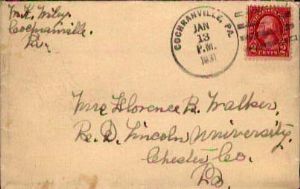 Cochranville,
Pa.
COCHRANVILLE, PA.
JAN
13
P.M.
2 CENTS 2
Mrs Florence B. Walker,
R. D. Lincoln University,
Chester Co.
Pa.